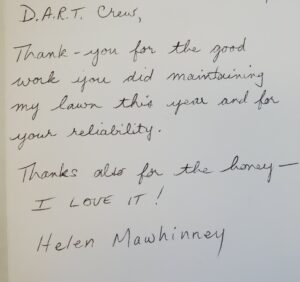 D.A.R.T. Crew,
Thank-you for the good
work you did maintaining
my lawn this year and for
your reliability.
Thanks also for the honey—
I LOVE IT!
Helen Mawhinney